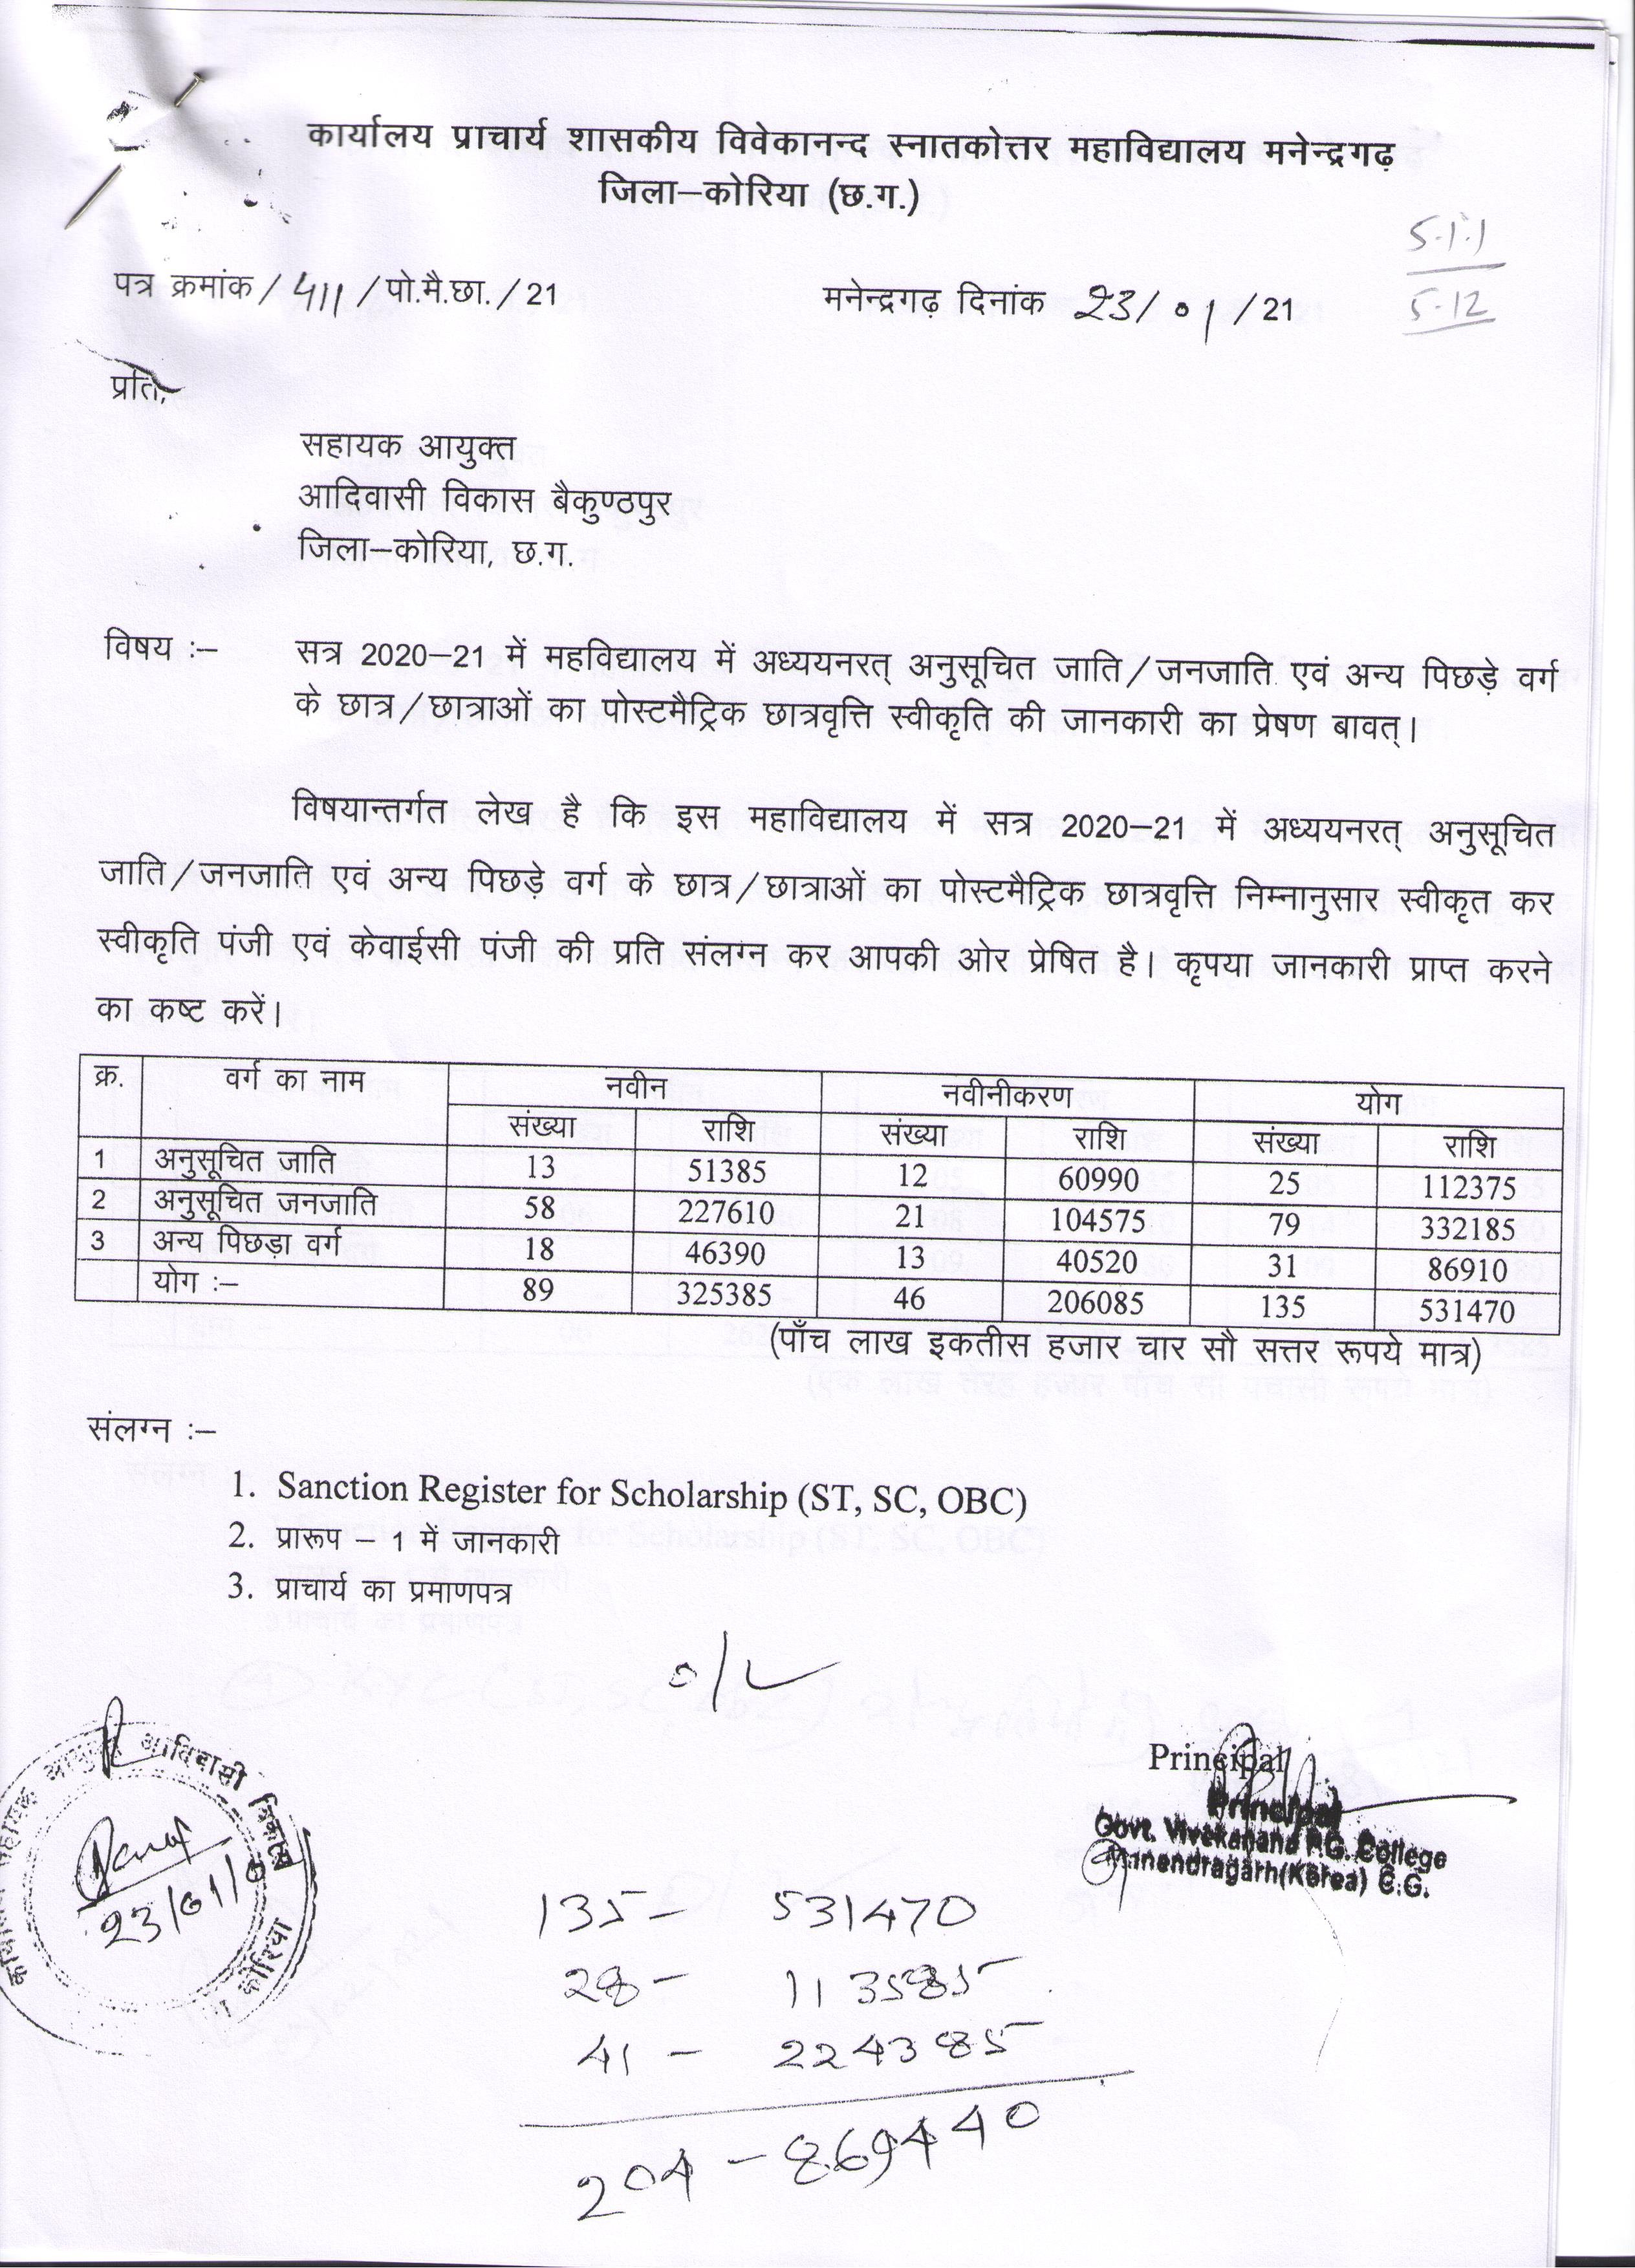 कार्यालय प्राचार्य शासकीय विवेकानन्द स्नातकोत्तर महाविद्यालय मनेन्द्रगढ़
जिला–कोरिया (छ.ग.)
5.1.1
5.12
पत्र क्रमांक / 411 / पो.मै.छा. / 21 मनेन्द्रगढ़ दिनांक 23/01/21
प्रति,
सहायक आयुक्त
आदिवासी विकास बैकुण्ठपुर
जिला–कोरिया, छ.ग.
विषय :– सत्र 2020–21 में महविद्यालय में अध्ययनरत् अनुसूचित जाति/जनजाति एवं अन्य पिछड़े वर्ग
के छात्र/छात्राओं का पोस्टमैट्रिक छात्रवृत्ति स्वीकृति की जानकारी का प्रेषण बावत्।
विषयान्तर्गत लेख है कि इस महाविद्यालय में सत्र 2020–21 में अध्ययनरत् अनुसूचित
जाति/जनजाति एवं अन्य पिछड़े वर्ग के छात्र/छात्राओं का पोस्टमैट्रिक छात्रवृत्ति निम्नानुसार स्वीकृत कर
स्वीकृति पंजी एवं केवाईसी पंजी की प्रति संलग्न कर आपकी ओर प्रेषित है। कृपया जानकारी प्राप्त करने
का कष्ट करें।
क्र. वर्ग का नाम नवीन नवीनीकरण योग
संख्या राशि संख्या राशि संख्या राशि
1 अनुसूचित जाति 13 51385 12 60990 25 112375
2 अनुसूचित जनजाति 58 227610 21 104575 79 332185
3 अन्य पिछड़ा वर्ग 18 46390 13 40520 31 86910
योग :– 89 325385 46 206085 135 531470
(पाँच लाख इकतीस हजार चार सौ सत्तर रूपये मात्र)
संलग्न :–
1. Sanction Register for Scholarship (ST, SC, OBC)
2. प्रारूप – 1 में जानकारी
3. प्राचार्य का प्रमाणपत्र
o/c
Principal
Principal
Govt. Vivekanand P.G. College
Manendragarh(Korea) C.G.
आदिवासी विकास
कोरिया
23/01/
135 – 531470
28 – 113585
41 – 224385
204 – 869440